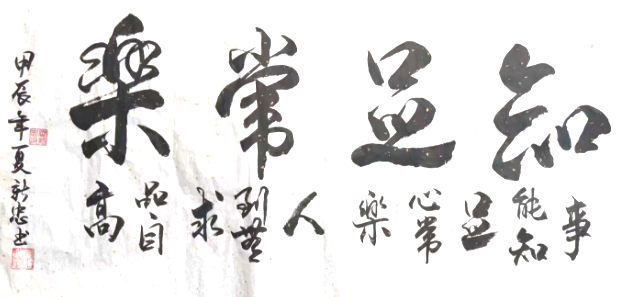 知足常樂
事能知足心常樂
人到無求品自高
甲辰年夏 书